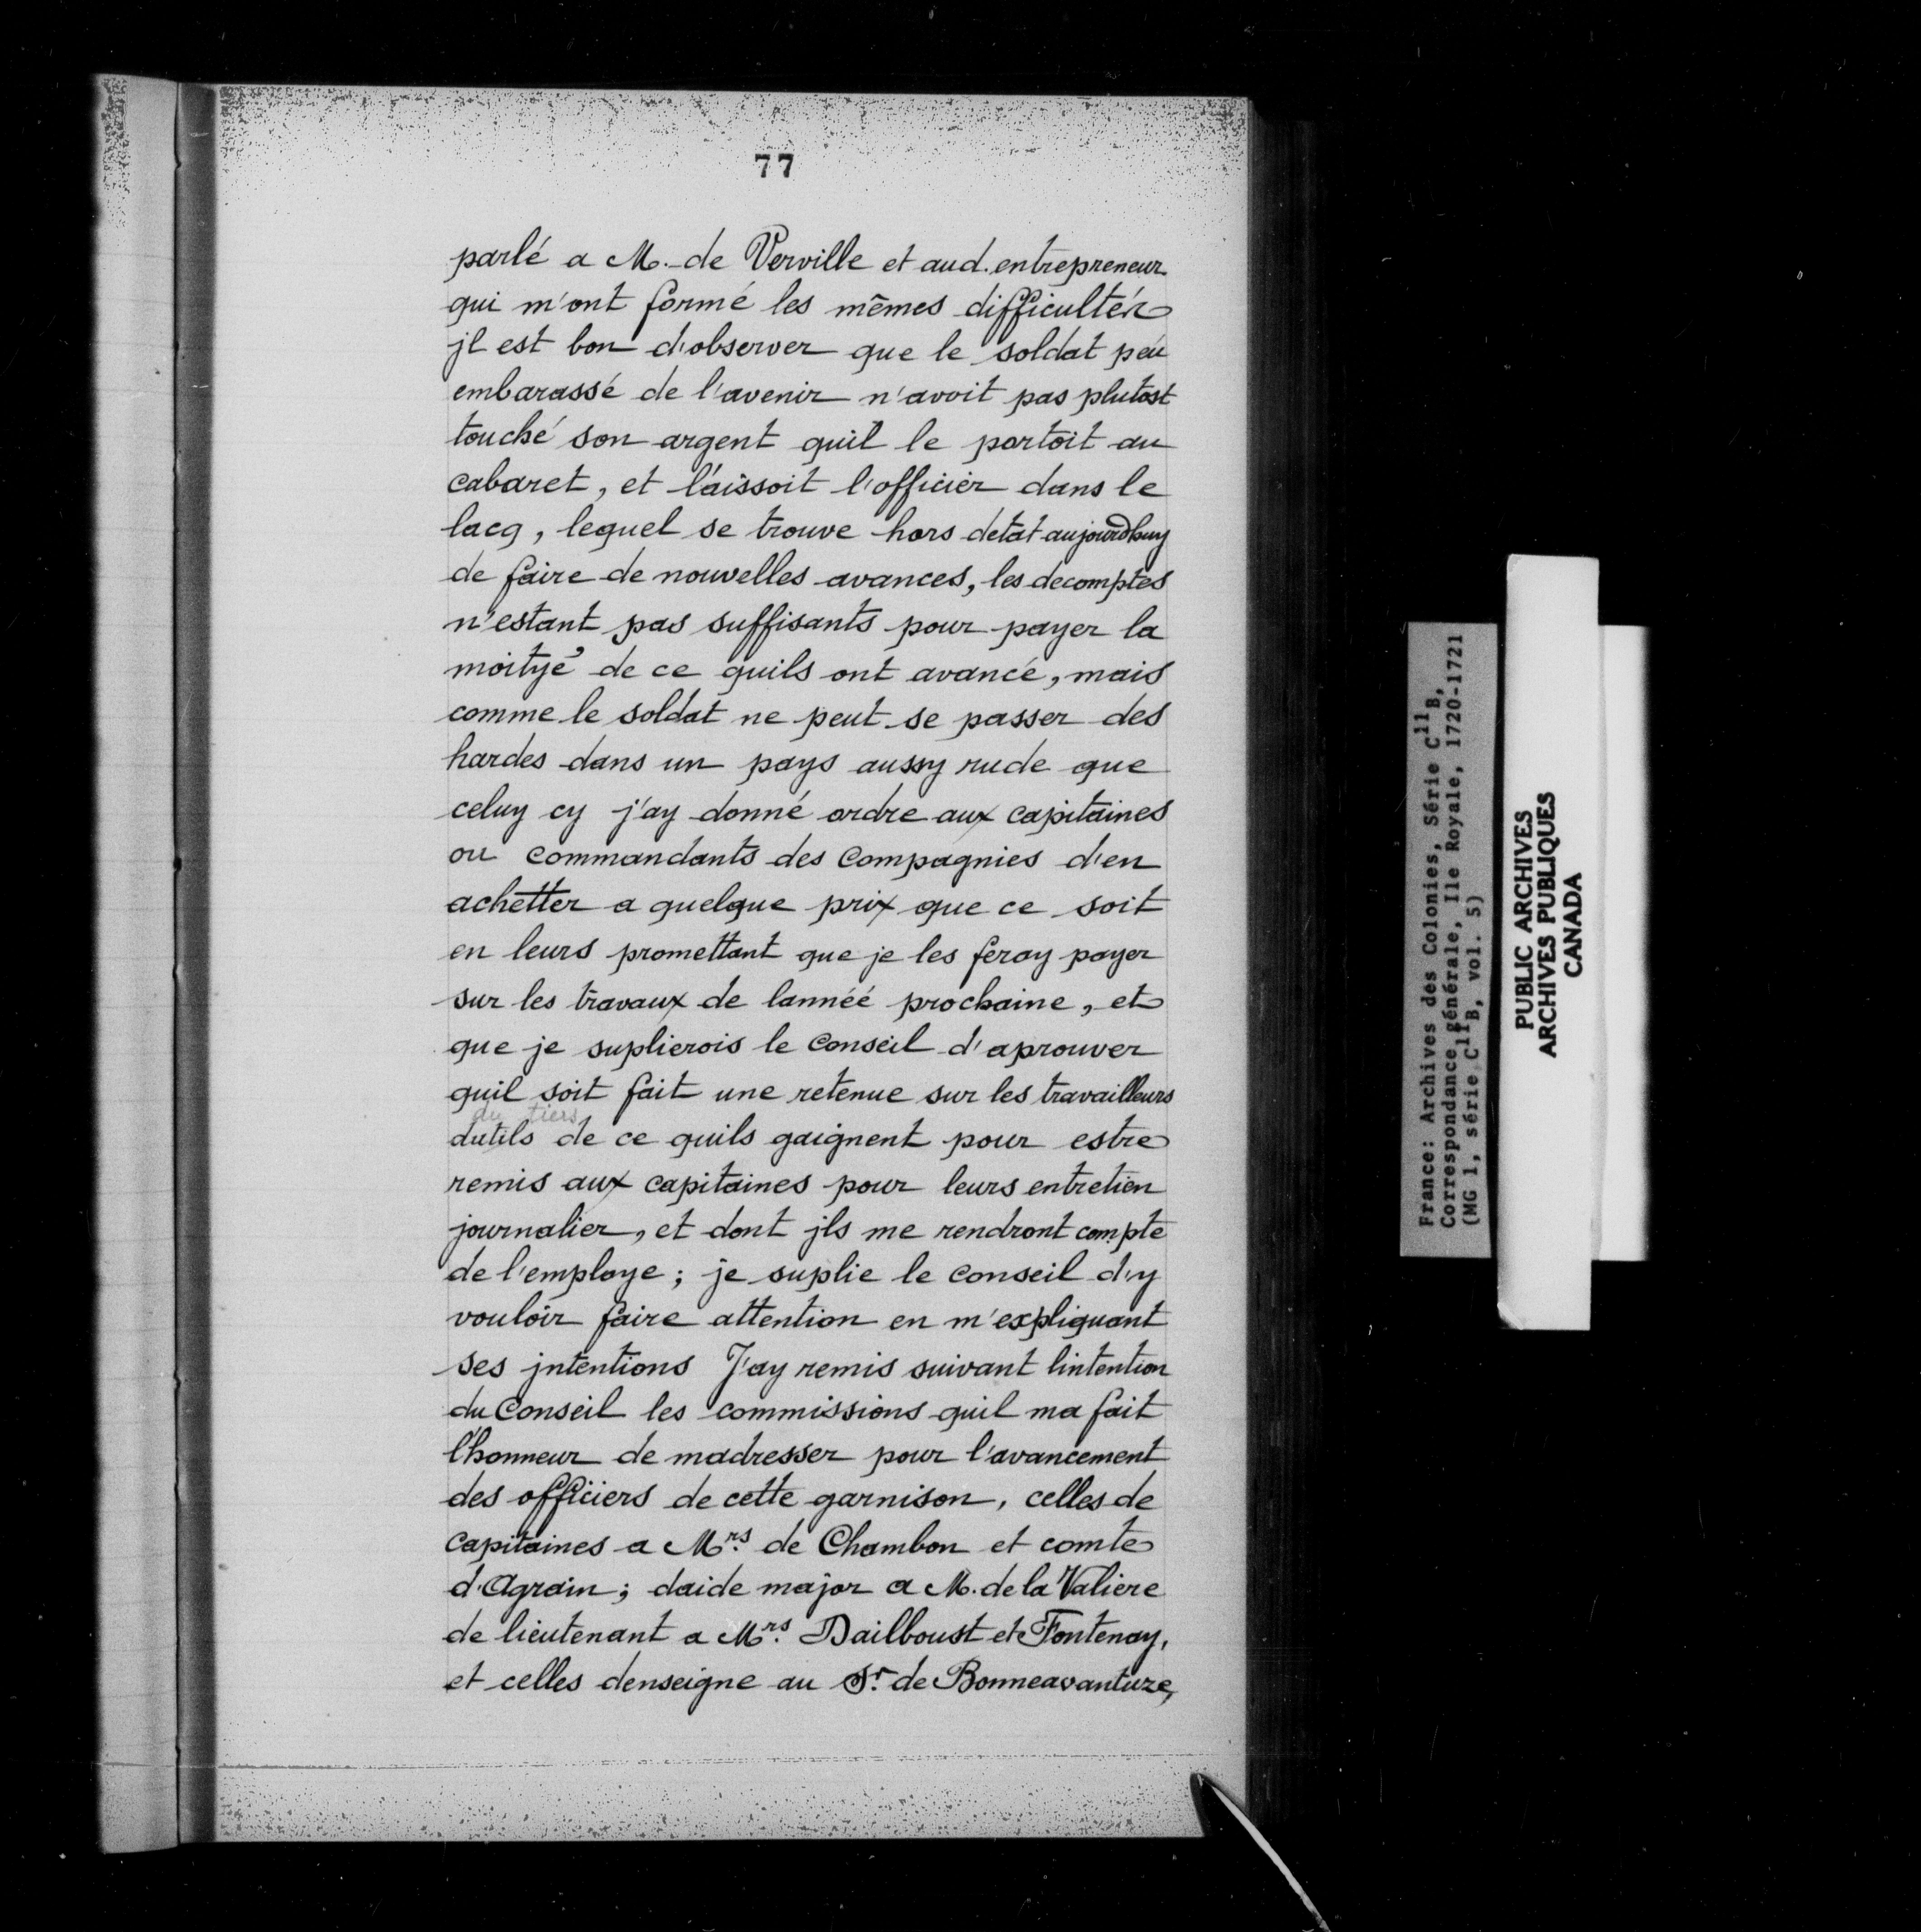 77
parlé a M. de Verville et aud. entrepreneur
qui m'ont formé les mêmes difficultéz
jl est bon d'observer que le soldat peu
embarassé de l'avenir n'avoit pas plutost
touché son argent quil le portoit au
cabaret, et laissoit l'officier dans le
lacq, lequel se trouve hors detat aujourdhuy
de faire de nouvelles avances, les decomptes
n'estant pas suffisants pour payer la
moityé de ce quils ont avancé, mais
comme le soldat ne peut se passer des
hardes dans un pays aussy rude que
celuy cy j'ay donné ordre aux capitaines
ou commandants des Compagnies d'en
achetter a quelque prix que ce soit
en leurs promettant que je les feray payer
sur les travaux de lannéé prochaine, et
que je suplierois le Conseil d'aprouver
quil soit fait une retenue sur les travailleurs
du tiers
dutils de ce quils gaignent pour estre
remis aux capitaines pour leurs entretien
journalier, et dont jls me rendront compte
de l'employe; je suplie le Conseil d'y
vouloir faire attention en m'expliquant
ses jntentions J'ay remis suivant lintention
du Conseil les commissions quil ma fait
l'honneur de madresser pour l'avancement
des officiers de cette garnison, celles de
Capitaines a Mrs. de Chambon et comte
d'Agrain; daide major a M. de la Valiere
de lieutenant a Mrs. Dailboust et Fontenay,
et celles denseigne au Sr. de Bonneavanture,
France: Archives des Colonies, Série C11B,
Correspondance générale, Ile Royale, 1720-1721
(MG 1, série C11B, vol. 5)
PUBLIC ARCHIVES
ARCHIVES PUBLIQUES
CANADA